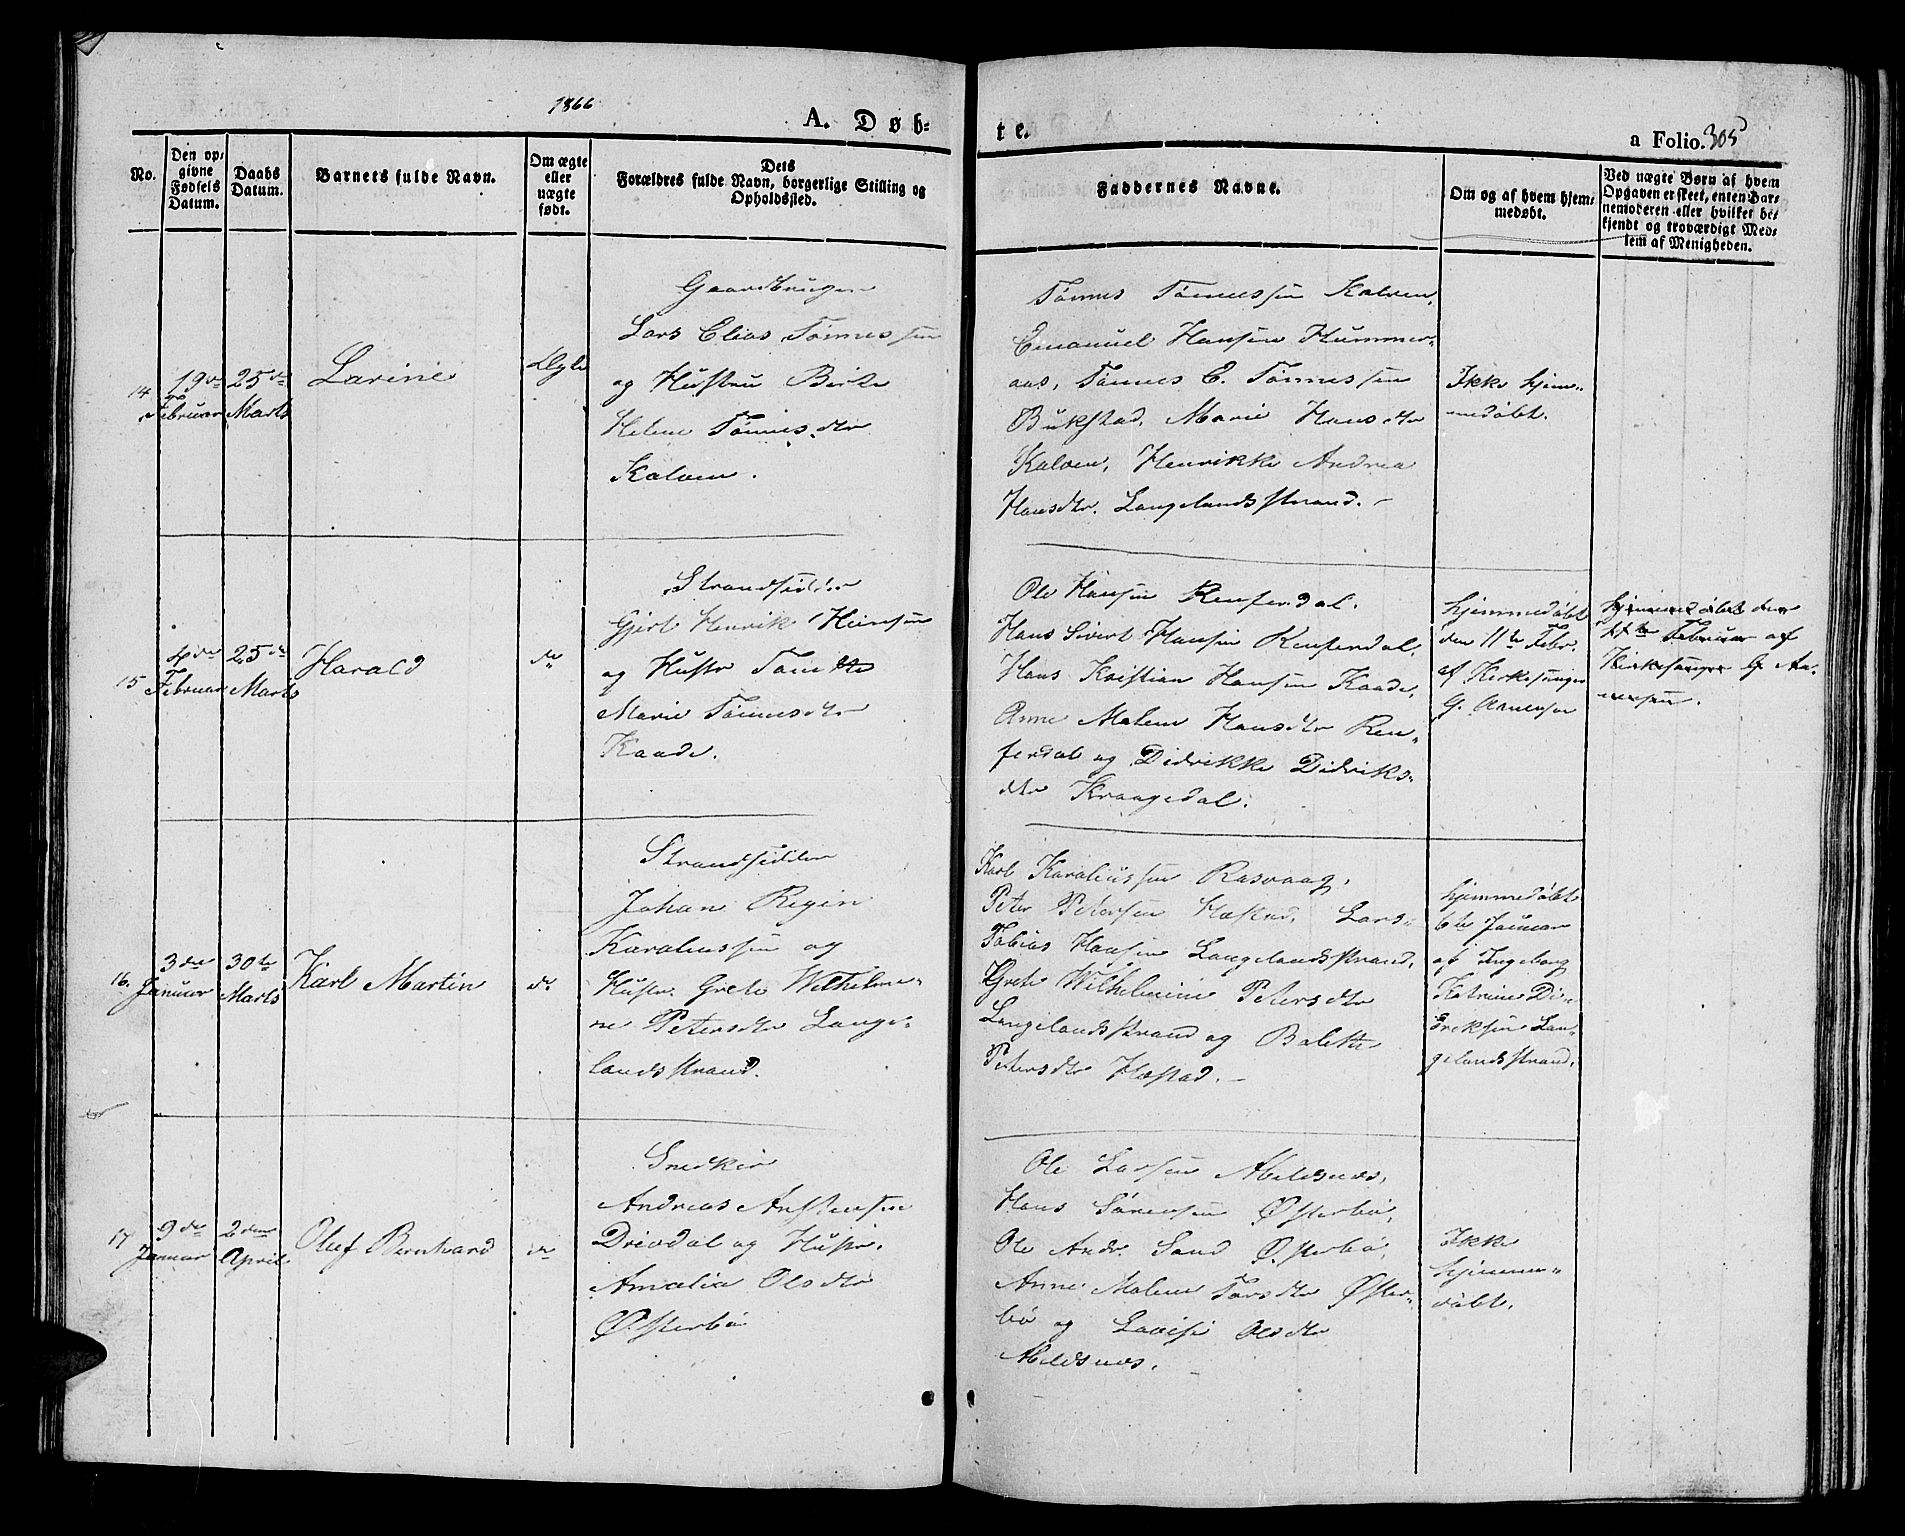 1866
A. Døb-
te.
a Folio. 305
No.
Den op-
givne
Fødsels
Datum.
Daabs
Datum.
Barnets fulde Navn.
Om ægte
eller
uægte
født.
Dets
Forældres fulde Navn, borgerlige Stilling og
Opholdssted.
Faddernes Navne.
Om og af hvem hjem-
medøbt.
Ved uægte Børn af hvem
Opgaven er skeet, enten Bar-
nemoderen eller hvilket be-
kjendt og troværdigt Med-
lem af Menigheden.
14
19de
Februar
25de
Marts
Larine
Ægte
Gaardbruger
Lars Elias Tønnessen
og Hustru Berte
Helene Tønnesdtr
Kalven.
Tønnes Tønnessen Kalven,
Emanuel Hansen Hummer-
aas, Tønnes E. Tønnessen
Bukstad, Marie Hansdtr
Kalven, Henrikke Andrea
Hansdtr. Langelandsstrand.
Ikke hjem-
medøbt.
15
4de
Februar
25de
Marts
Harald
do
Strandsidder
Gjert Henrik
og Hustr Tonette
Marie Tønnesdtr
Kaade.
Ole Hansen Renferdal.
Hans Sivert Hansen Renferdal,
Hans Kristian Hansen Kaade,
Anne Malene Hansdtr Ren-
ferdal og Didrikke Didriks-
dtr Kraagedal.
hjemmedøbt
den 11te Febr.
af Kirkesanger
G. Arnensen
hjemmedøbt den
11te Februar af
Kirkesanger G. Ar-
nensen.
16.
3die
Januar
30te
Marts
Karl Martin
do
Strandsidder
Johan Regin
Karaliussen og
Hustr. Grete Wilhelmi-
ne Petersdtr Lange-
landsstrand.
Karl Karaliussen Rasvaag,
Peter Petersen Hæstad, Lars
Tobias Hansen Langelandsstrand,
Grete Wilhelmine Petersdtr
Langelandsstrand og Balette
Petersdtr Hæstad.
hjemmedøbt
6te Januar
af Ingeborg
Katrine Di-
driksen Lan-
gelandsstrand.
17
9de
Januar
2den
April
Oluf Bernhard
do
Snedker
Andreas Anstensen
Drivdal og Hustr.
Amalia Olsdtr
Østerbø
Ole Larsen Abelsnæs,
Hans Sørensen Østerbø,
Ole Andr. Sand Østerbø,
Anne Malene Larsdtr Øster-
bø og Lavise Olsdtr
Abelsnæs.
Ikke
hjemme-
døbt.